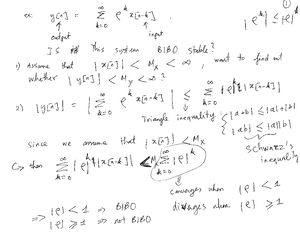 ex: y[n] = Σ_{k=0}^{∞} ρ^k x[n-k] .
①
|ρ^k| ≤ |ρ|^k
output input
Is this system BIBO stable?
1) Assume that |x[n]| < M_x < ∞ , want to find out
whether |y[n]| < M_y < ∞ ?
2) |y[n]| = | Σ_{k=0}^{∞} ρ^k x[n-k] | ≤ Σ_{k=0}^{∞} |ρ|^k |x[n-k]|
Triangle inequality { |a+b| ≤ |a|+|b|
|ab| ≤ |a||b|
Schwartz's inequality
since we assume that |x[n]| < M_x
↳ then Σ_{k=0}^{∞} |ρ|^k |x[n-k]| < M_x Σ_{k=0}^{∞} |ρ|^k
converges when |ρ| < 1
diverges when |ρ| ≥ 1
⇒ |ρ| < 1 ⇒ BIBO
|ρ| ≥ 1 ⇒ not BIBO